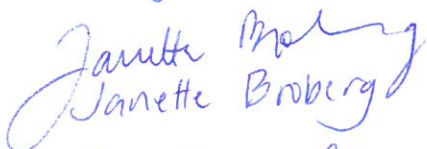 Janette Broberg
Janette Broberg